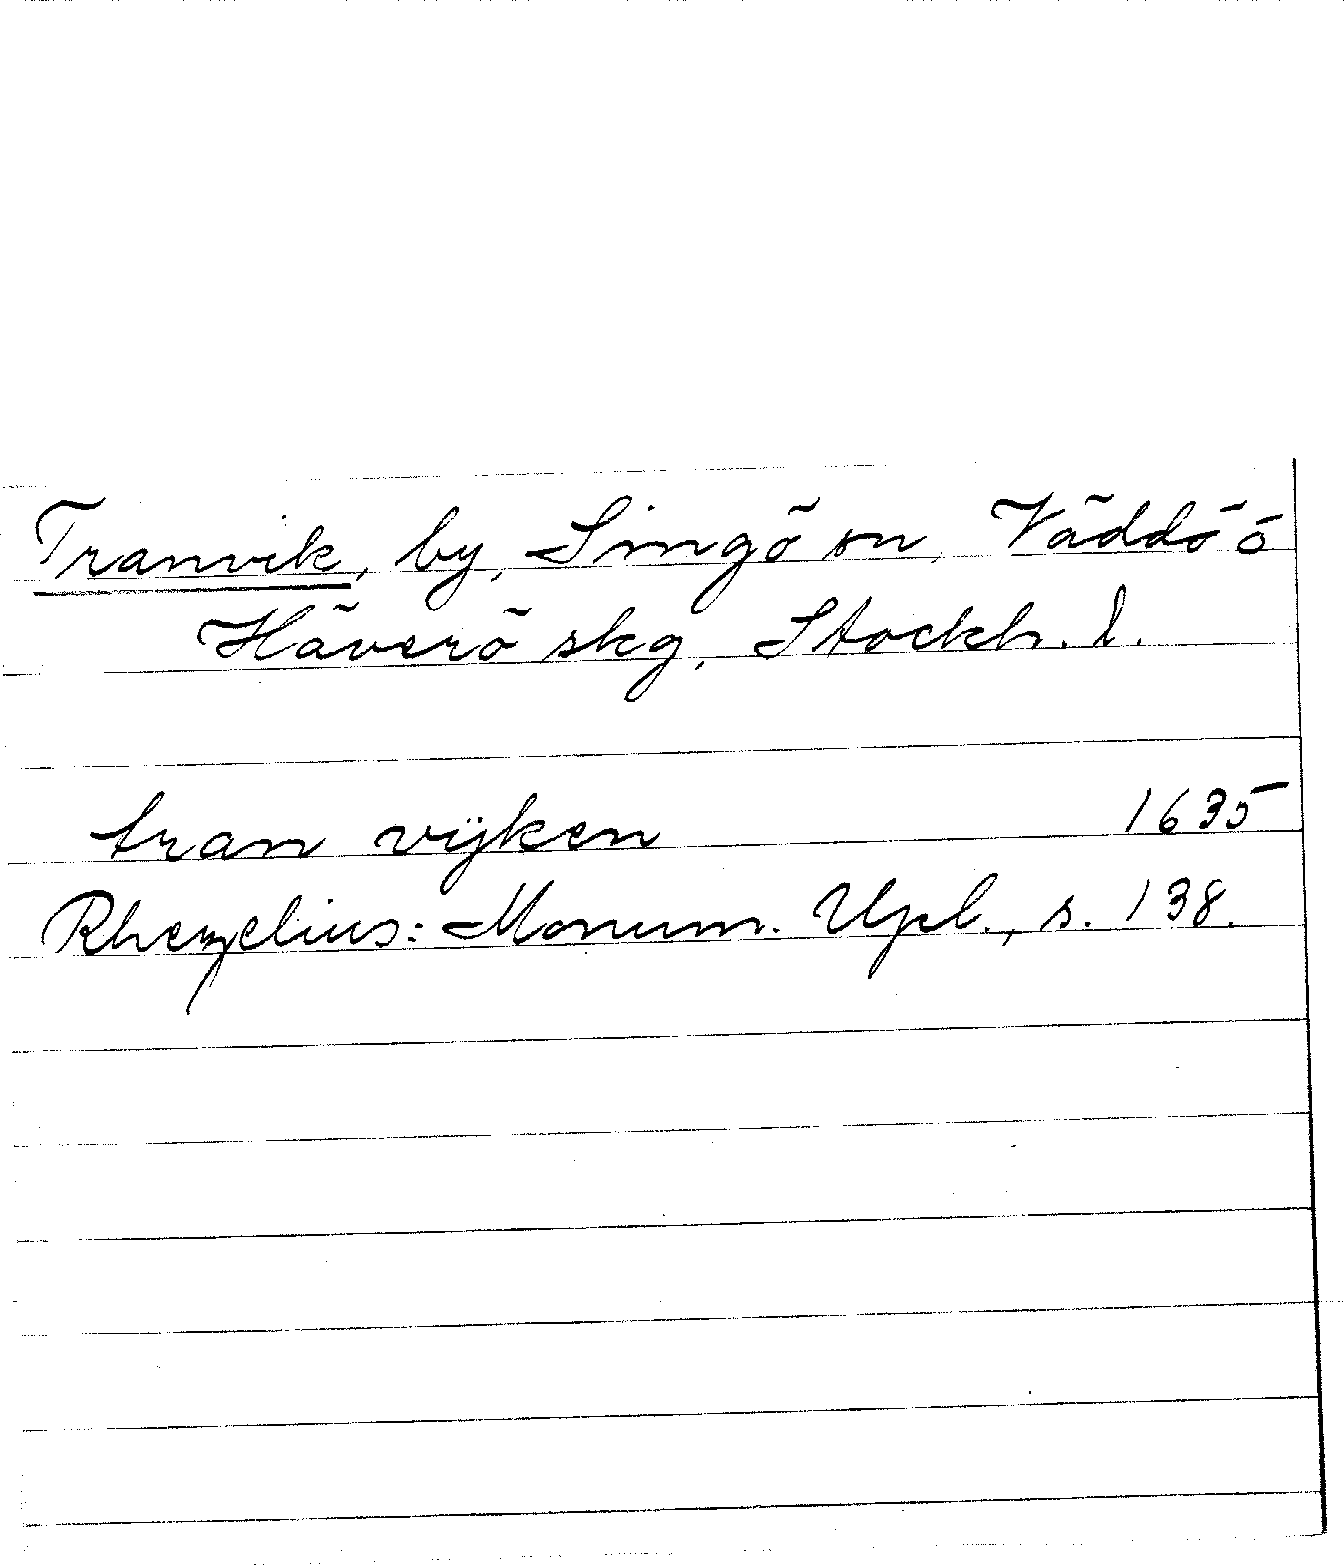 Tranvik, by, Singö sn, Väddö o
Häverö skg, Stockh. l.
tran vijken 1635
Rhezelius: Monum. Upl., s. 138.